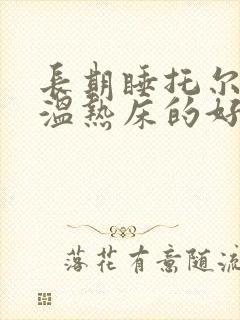 長期睡托尔
溫熱床的好
落花有意随流